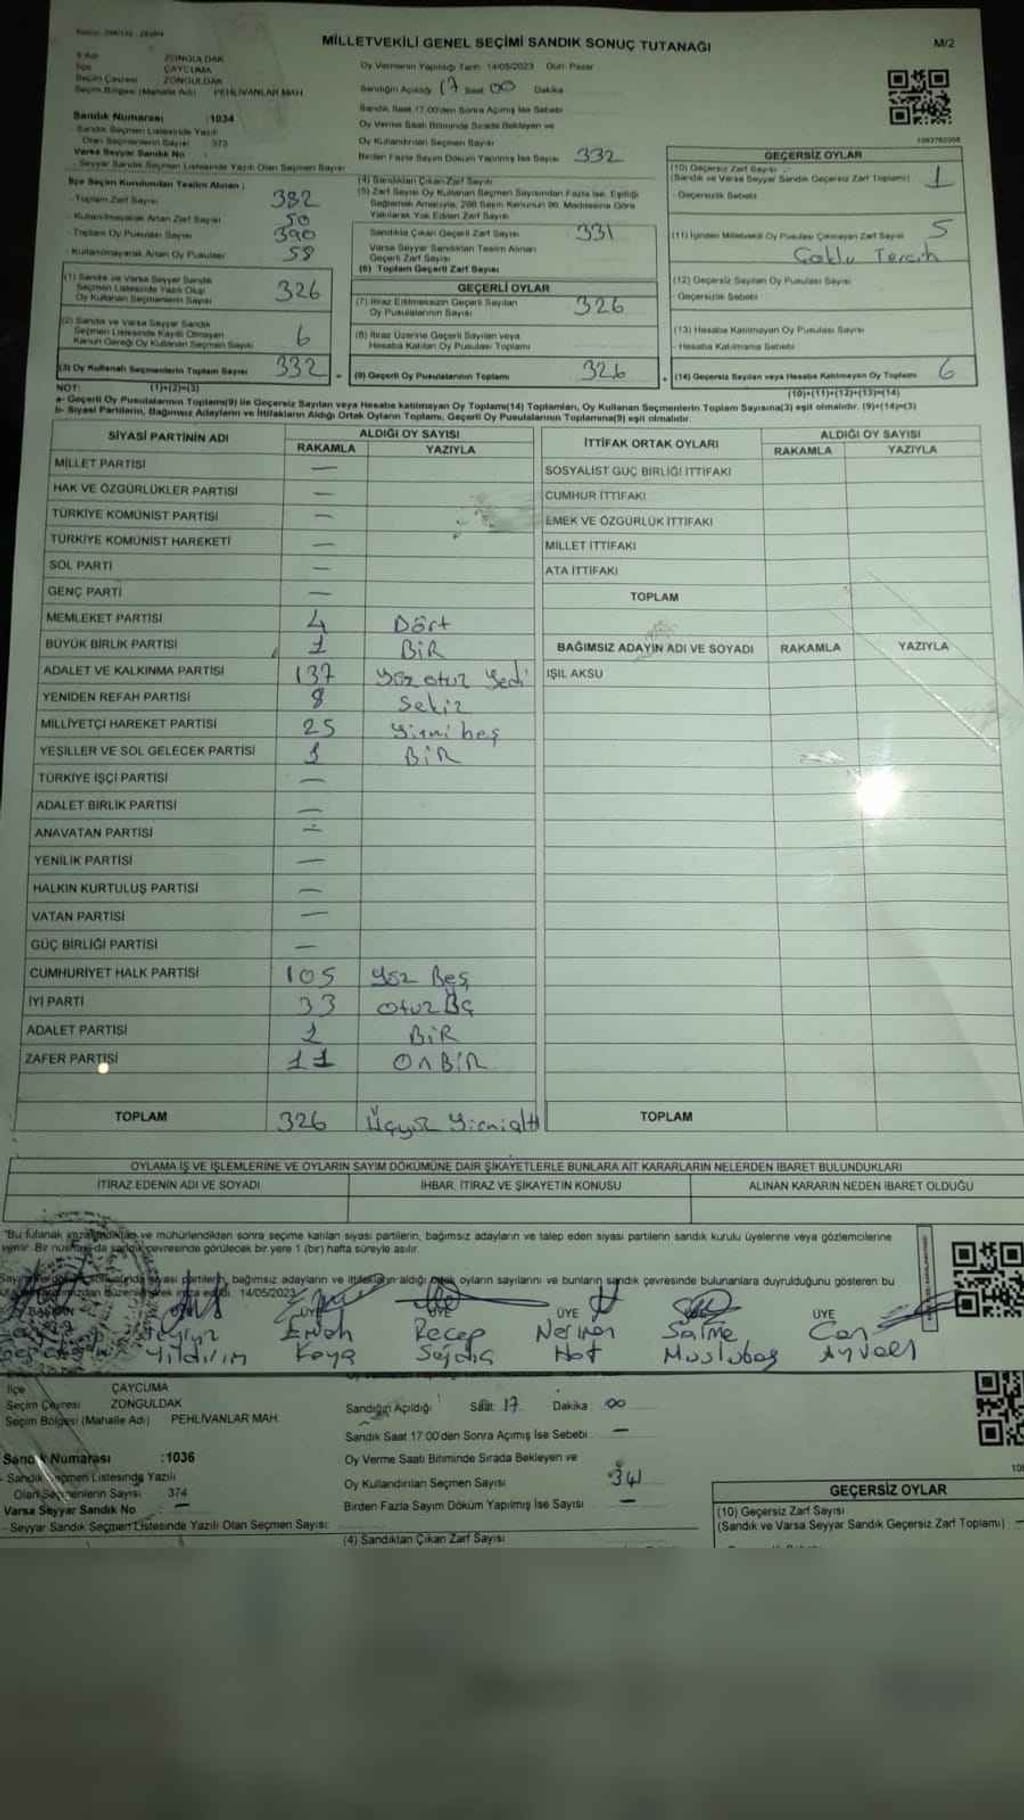 MİLLETVEKİLİ GENEL SEÇİMİ SANDIK SONUÇ TUTANAĞI
M/2
ZONGULDAK
ÇAYCUMA
ZONGULDAK
Seçim Bölgesi (Mahalle Adı) PEHLİVANLAR MAH.
Sandık Numarası :1034
Sandık Seçmen Listesinde Yazılı
Olan Seçmenlerin Sayısı 373
Varsa Seyyar Sandık No
Seyyar Sandık Seçmen Listesinde Yazılı Olan Seçmen Sayısı
Oy Vermenin Yapıldığı Tarih: 14/05/2023 Gün: Pazar
Sandığın Açıldığı 17 Saat 00 Dakika
Sandık Saat 17:00'den Sonra Açımış İse Sebebi
Oy Verme Saati Bitiminde Sırada Bekleyen ve
Oy Kullandırılan Seçmen Sayısı
Birden Fazla Sayım Döküm Yapılmış İse Sayısı
İlçe Seçim Kurulundan Teslim Alınan ;
Toplam Zarf Sayısı 382
Kullanılmayarak Artan Zarf Sayısı 50
Toplam Oy Pusulası Sayısı 390
Kullanılmayarak Artan Oy Pusulası 58
(1) Sandık ve Varsa Seyyar Sandık
Seçmen Listesinde Yazılı Olup
Oy Kullanan Seçmenlerin Sayısı 326
(2) Sandık ve Varsa Seyyar Sandık
Seçmen Listesinde Kayıtlı Olmayan
Kanun Gereği Oy Kullanan Seçmen Sayısı 6
(3) Oy Kullanan Seçmenlerin Toplam Sayısı 332
NOT: (1)+(2)=(3)
332
(4) Sandıktan Çıkan Zarf Sayısı
(5) Zarf Sayısı Oy Kullanan Seçmen Sayısından Fazla İse, Eşitliği
Sağlamak Amacıyla, 298 Sayılı Kanunun 98. Maddesine Göre
Yakılarak Yok Edilen Zarf Sayısı
Sandıkta Çıkan Geçerli Zarf Sayısı 331
Varsa Seyyar Sandıktan Teslim Alınan
Geçerli Zarf Sayısı
(6) Toplam Geçerli Zarf Sayısı
GEÇERLİ OYLAR
(7) İtiraz Edilmeksizin Geçerli Sayılan
Oy Pusulalarının Sayısı 326
(8) İtiraz Üzerine Geçerli Sayılan veya
Hesaba Katılan Oy Pusulası Toplamı
(9) Geçerli Oy Pusulalarının Toplamı 326
GEÇERSİZ OYLAR
(10) Geçersiz Zarf Sayısı
(Sandık ve Varsa Seyyar Sandık Geçersiz Zarf Toplamı) 1
Geçersizlik Sebebi
(11) İçinden Milletvekili Oy Pusulası Çıkmayan Zarf Sayısı 5
Çoklu Tercih
(12) Geçersiz Sayılan Oy Pusulası Sayısı
Geçersizlik Sebebi
(13) Hesaba Katılmayan Oy Pusulası Sayısı
Hesaba Katılmama Sebebi
(14) Geçersiz Sayılan veya Hesaba Katılmayan Oy Toplamı 6
(10)+(11)+(12)+(13)=(14)
a- Geçerli Oy Pusulalarının Toplamı(9) ile Geçersiz Sayılan veya Hesaba katılmayan Oy Toplamı(14) Toplamları, Oy Kullanan Seçmenlerin Toplam Sayısına(3) eşit olmalıdır. (9)+(14)=(3)
b- Siyasi Partilerin, Bağımsız Adayların ve İttifakların Aldığı Ortak Oyların Toplamı, Geçerli Oy Pusulalarının Toplamına(9) eşit olmalıdır.
SİYASİ PARTİNİN ADI ALDIĞI OY SAYISI
RAKAMLA YAZIYLA
MİLLET PARTİSİ —
HAK VE ÖZGÜRLÜKLER PARTİSİ —
TÜRKİYE KOMÜNİST PARTİSİ —
TÜRKİYE KOMÜNİST HAREKETİ —
SOL PARTİ —
GENÇ PARTİ —
MEMLEKET PARTİSİ 4 Dört
BÜYÜK BİRLİK PARTİSİ 1 BİR
ADALET VE KALKINMA PARTİSİ 137 Yüz otuz Yedi
YENİDEN REFAH PARTİSİ 8 Sekiz
MİLLİYETÇİ HAREKET PARTİSİ 25 Yirmi beş
YEŞİLLER VE SOL GELECEK PARTİSİ 1 BİR
TÜRKİYE İŞÇİ PARTİSİ —
ADALET BİRLİK PARTİSİ —
ANAVATAN PARTİSİ —
YENİLİK PARTİSİ —
HALKIN KURTULUŞ PARTİSİ —
VATAN PARTİSİ —
GÜÇ BİRLİĞİ PARTİSİ —
CUMHURİYET HALK PARTİSİ 105 Yüz Beş
İYİ PARTİ 33 otuz Üç
ADALET PARTİSİ 1 BİR
ZAFER PARTİSİ 11 ONBİR
TOPLAM 326 Üçyüz Yirmialtı
İTTİFAK ORTAK OYLARI ALDIĞI OY SAYISI
RAKAMLA YAZIYLA
SOSYALİST GÜÇ BİRLİĞİ İTTİFAKI
CUMHUR İTTİFAKI
EMEK VE ÖZGÜRLÜK İTTİFAKI
MİLLET İTTİFAKI
ATA İTTİFAKI
TOPLAM
BAĞIMSIZ ADAYIN ADI VE SOYADI RAKAMLA YAZIYLA
IŞIL AKSU
TOPLAM
OYLAMA İŞ VE İŞLEMLERİNE VE OYLARIN SAYIM DÖKÜMÜNE DAİR ŞİKAYETLERLE BUNLARA AİT KARARLARIN NELERDEN İBARET BULUNDUKLARI
İTİRAZ EDENİN ADI VE SOYADI İHBAR, İTİRAZ VE ŞİKAYETİN KONUSU ALINAN KARARIN NEDEN İBARET OLDUĞU
"Bu tutanak imzalandıktan ve mühürlendikten sonra seçime katılan siyasi partilerin, bağımsız adayların ve talep eden siyasi partilerin sandık kurulu üyelerine veya gözlemcilerine
verilir. Bir nüshası da sandık çevresinde görülecek bir yere 1 (bir) hafta süreyle asılır.
siyasi partilerin, bağımsız adayların ve ittifakların aldığı ortak oyların sayılarını ve bunların sandık çevresinde bulunanlara duyurulduğunu gösteren bu
14/05/2023
BAŞKAN ÜYE ÜYE ÜYE ÜYE
Yıldırım
Kaya
Recep
Nerimen
Hot
Salme
Muslubaş
Can
Ayvalı
İlçe ÇAYCUMA
Seçim Çevresi ZONGULDAK
Seçim Bölgesi (Mahalle Adı) PEHLİVANLAR MAH.
Sandık Numarası :1036
Sandık Seçmen Listesinde Yazılı
Olan Seçmenlerin Sayısı 374
Varsa Seyyar Sandık No —
Seyyar Sandık Seçmen Listesinde Yazılı Olan Seçmen Sayısı:
Sandığın Açıldığı Saat 17 Dakika 00
Sandık Saat 17:00'den Sonra Açımış İse Sebebi —
Oy Verme Saati Bitiminde Sırada Bekleyen ve
Oy Kullandırılan Seçmen Sayısı
Birden Fazla Sayım Döküm Yapılmış İse Sayısı —
(4) Sandıktan Çıkan Zarf Sayısı
GEÇERSİZ OYLAR
(10) Geçersiz Zarf Sayısı
(Sandık ve Varsa Seyyar Sandık Geçersiz Zarf Toplamı) —